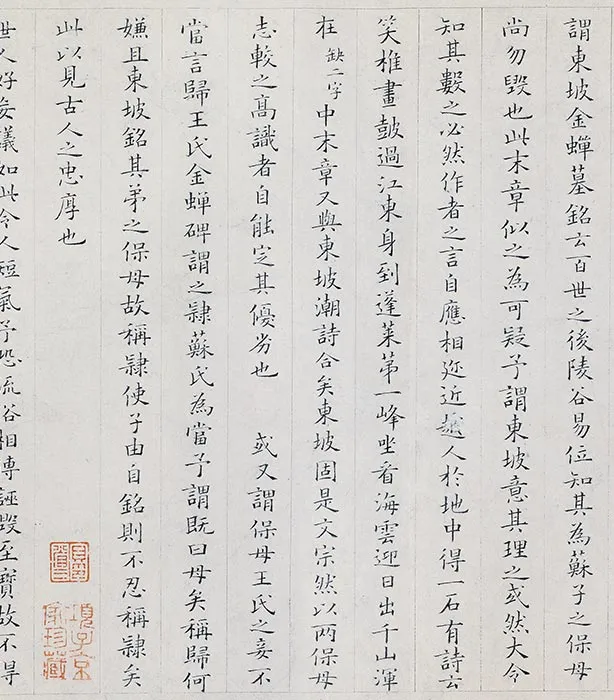 謂東坡金蟬墓銘云百世之後陵谷易位知其為蘇子之保母
尚勿毀也此末章似之為可疑予謂東坡意其理之或然大令
知其數之必然作者之言自應相迩近越人於地中得一石有詩云
笑椎畫皷過江東身到蓬萊第一峰坐看海雲迎日出千山渾
在缺二字中末章又與東坡潮詩合矣東坡固是文宗然以兩保母
志較之高識者自能定其優劣也 或又謂保母王氏之妾不
當言歸王氏金蟬碑謂之隸蘇氏為當予謂既曰母矣稱歸何
嫌且東坡銘其弟之保母故稱隸使子由自銘則不忍稱隸矣
此以見古人之忠厚也
世人好妄議如此令人短氣予恐流俗相傳誣毀至寶故不得
項子京家珍藏